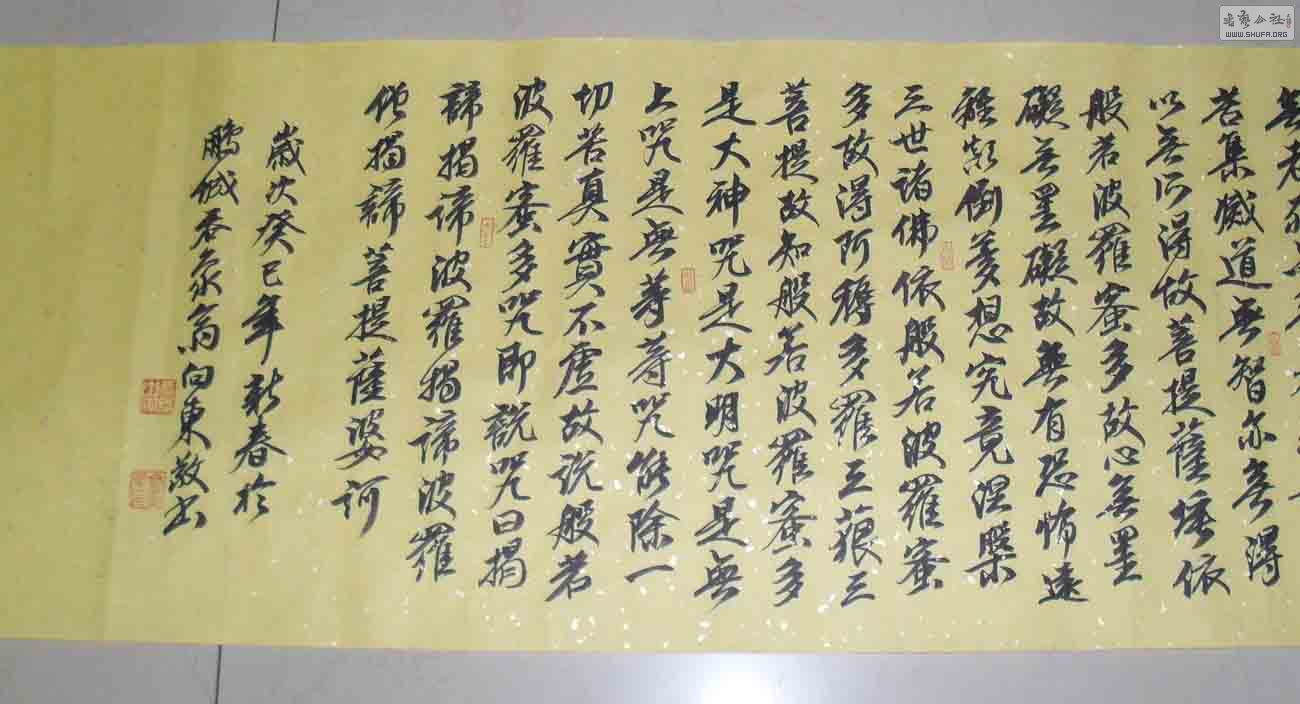 無老死
苦集滅道無智亦無得
以無所得故菩提薩埵依
般若波羅蜜多故心無罣
礙無罣礙故無有恐怖遠
離顛倒夢想究竟涅槃
三世諸佛依般若波羅蜜
多故得阿耨多羅三藐三
菩提故知般若波羅蜜多
是大神咒是大明咒是無
上咒是無等等咒能除一
切苦真實不虛故說般若
波羅蜜多咒即說咒曰揭
諦揭諦波羅揭諦波羅
僧揭諦菩提薩婆訶
歲次癸巳年新春於
鵬城吞象翁向東敬書
書藝公社
WWW.SHUFA.ORG